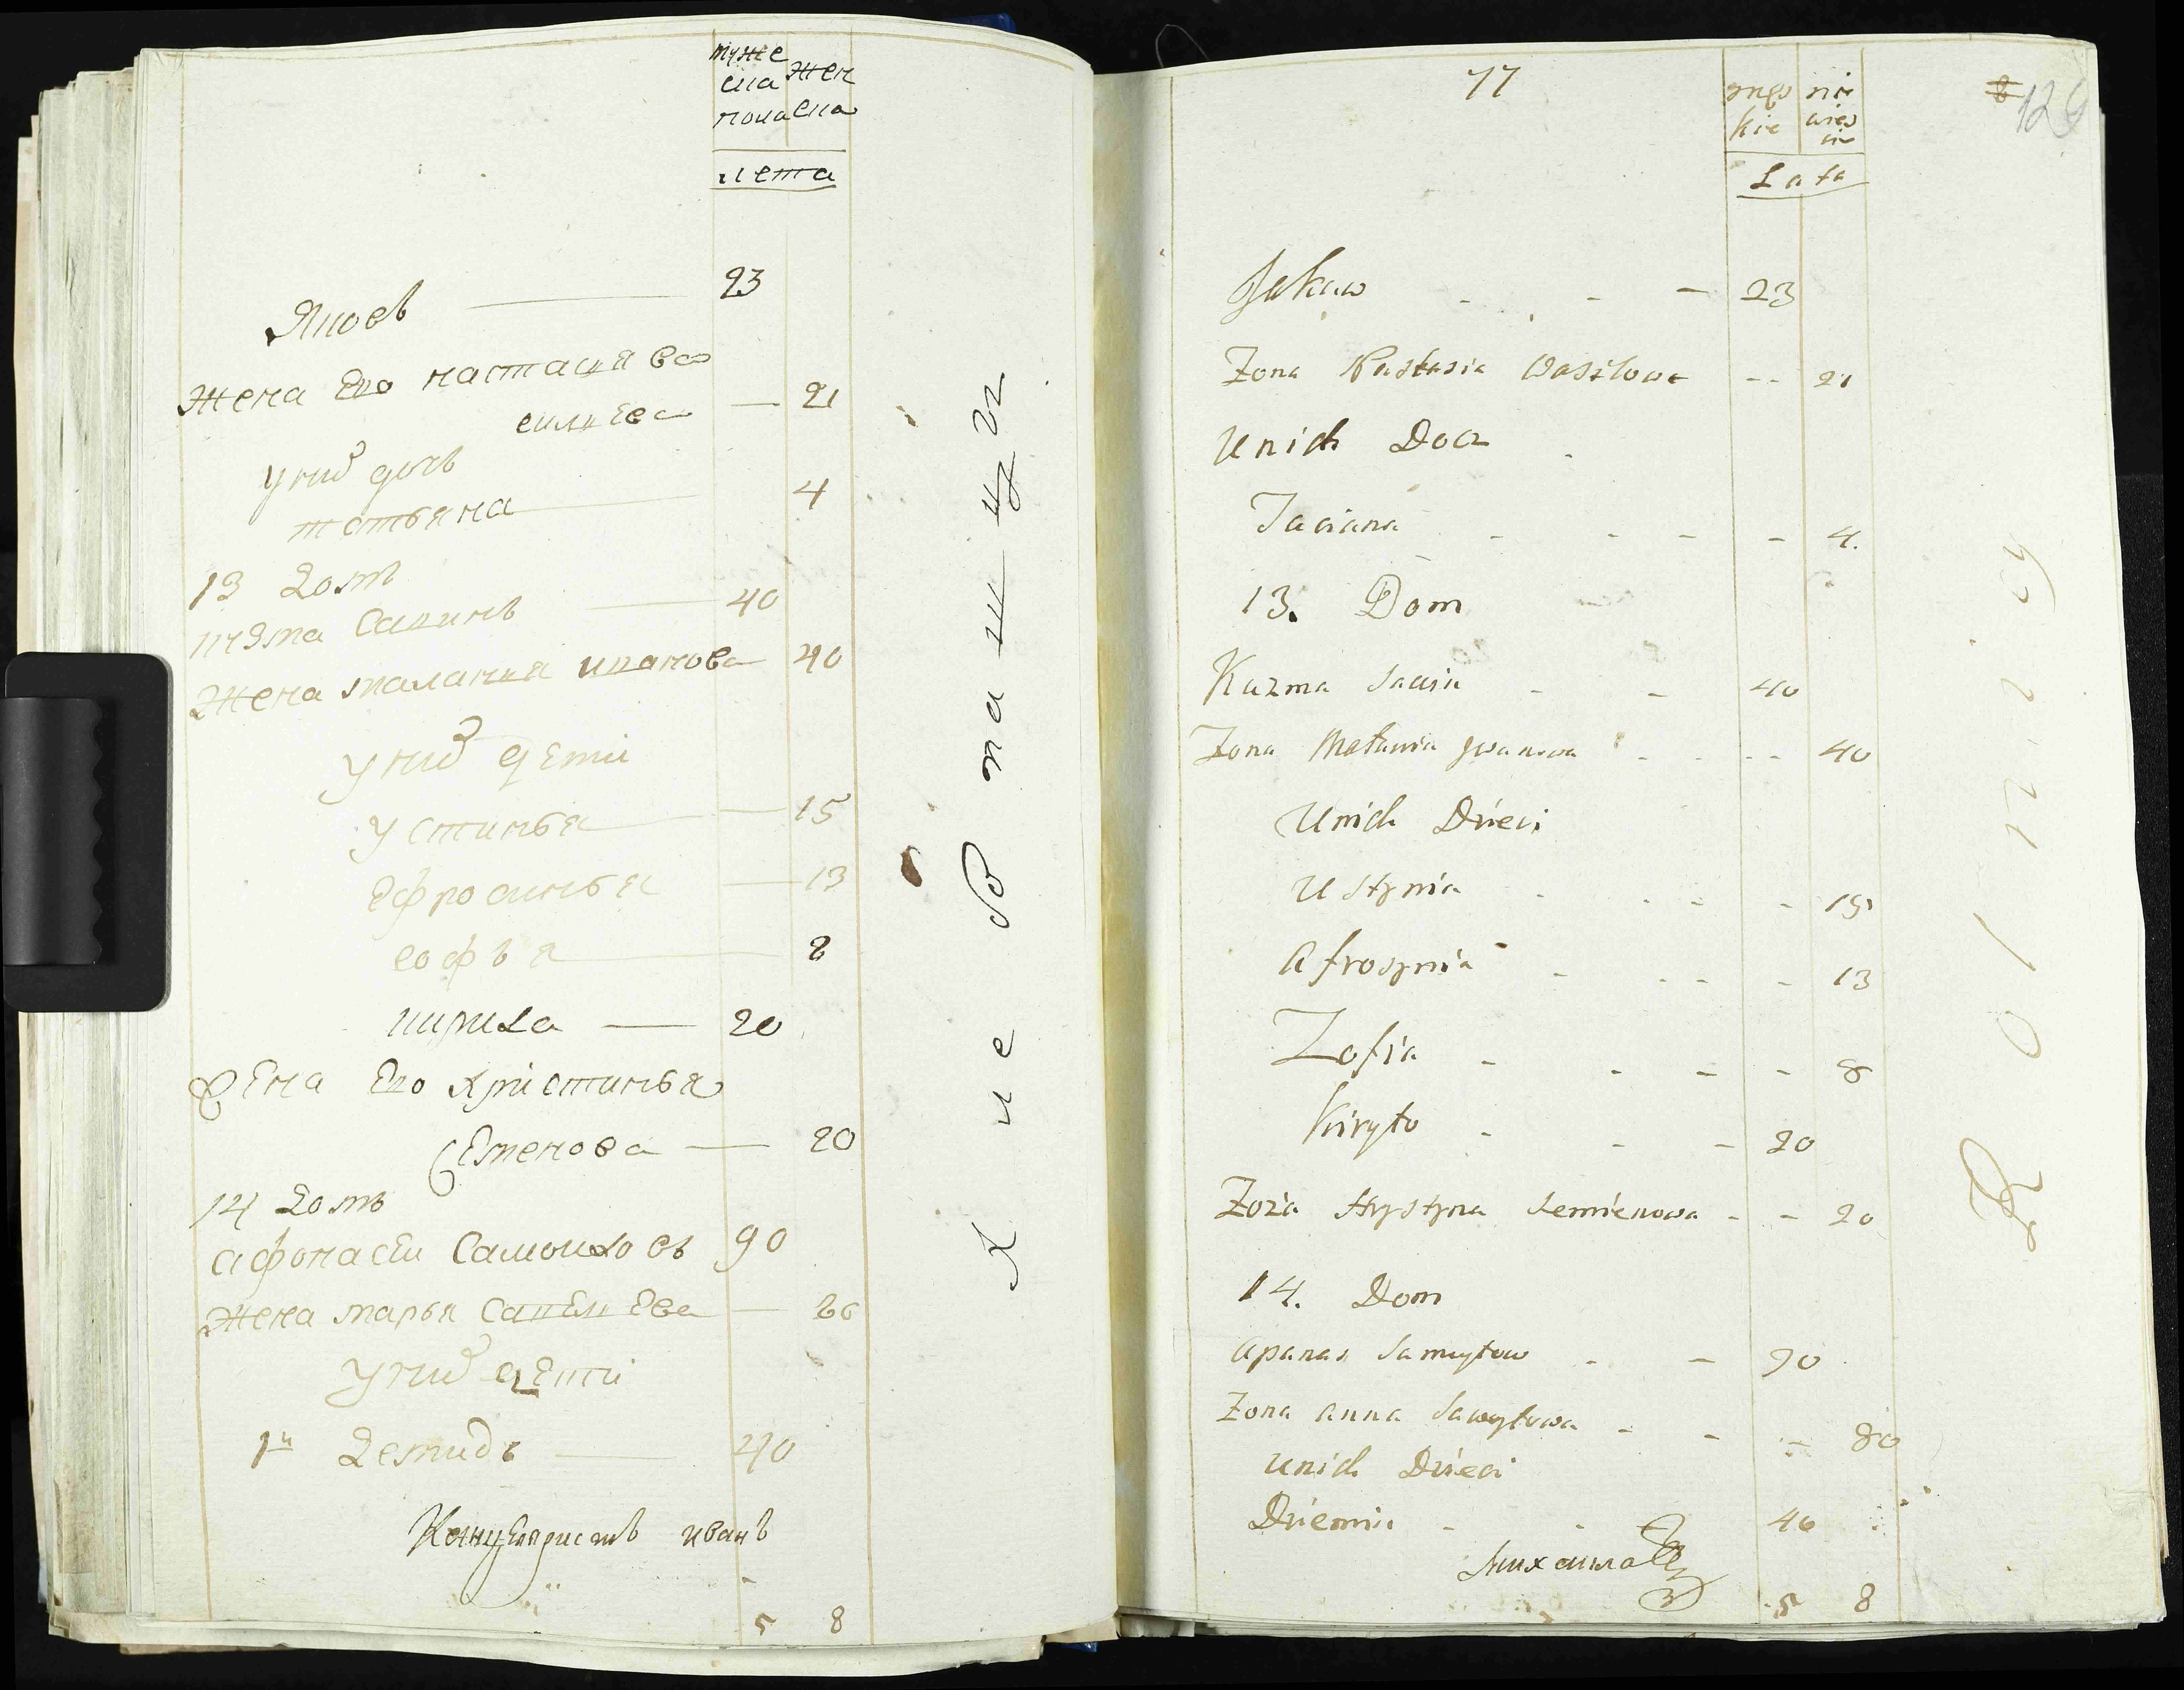 муже
ска жен
пола ска
лета
Яковъ 23
Жена Его настасия ва
силиева 21
у них дочь
татьяна 4
13 Домъ
Жена малания иванова 40
у них дети
устинья 15
Ефросинья 13
софья 8
кирила 20
Жена Его християнья
Семенова 20
14 Домъ
афонаси Самоиловъ 90
Жена марья 80
у них дети
1й Демидъ 40
Канцеляристъ иванъ
5 8
77
męs nie
kie wies
cie
Lata
126
Jakow 23
Zona Nastasia Wasilowa 21
Unich Docz
Taciana 4.
13. Dom
Kuzma Sawin 40
Zona Małania Jwanowa 40
Unich Dzieci
Ustynia 15
Afrosynia 13
Zofia 8
Kiryło 20
Zoźa Hrystyna Semienowa 20
14. Dom
Apanas Samuyłow 90
Zona anna Sawyłowa 80
unich Dzieci
Dziemid 40
Михаила
5 8